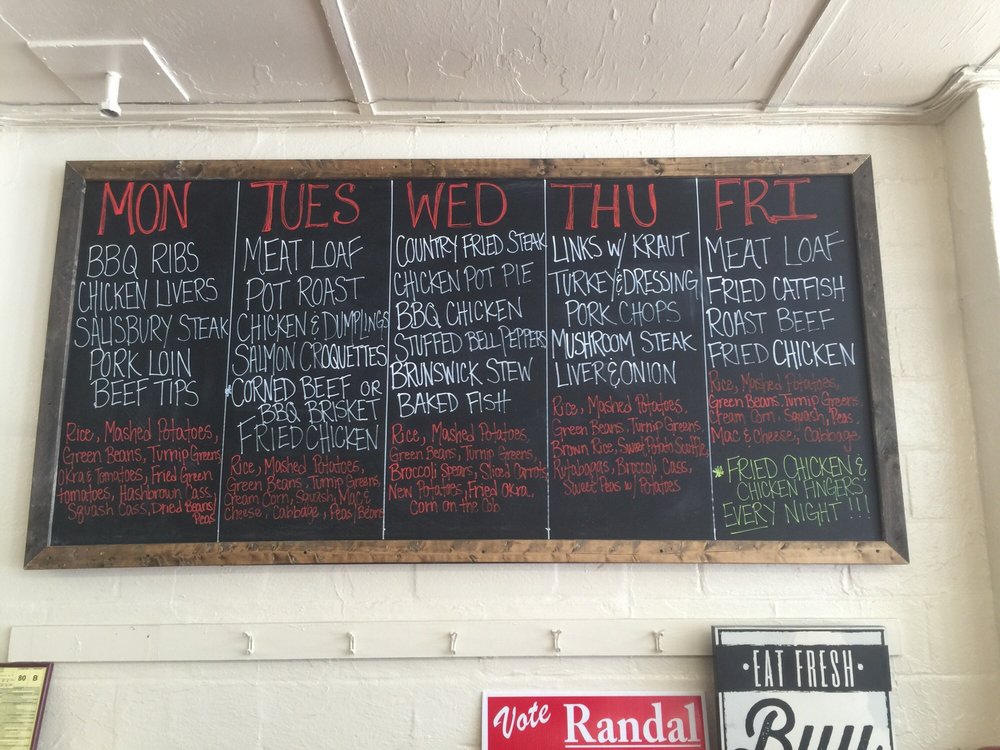 MON
BBQ RIBS
CHICKEN LIVERS
SALISBURY STEAK
PORK LOIN
BEEF TIPS
Rice, Mashed Potatoes,
Green Beans, Turnip Greens
Okra & Tomatoes, Fried Green
Tomatoes, Hashbrown Cass,
Squash Cass, Dried Beans/
Peas
TUES
MEAT LOAF
POT ROAST
CHICKEN & DUMPLINGS
SALMON CROQUETTES
*CORNED BEEF OR
BBQ BRISKET
FRIED CHICKEN
Rice, Mashed Potatoes,
Green Beans, Turnip Greens,
Cream Corn, Squash, Mac &
Cheese, Cabbage, Peas, Beans
WED
COUNTRY FRIED STEAK
CHICKEN POT PIE
BBQ CHICKEN
STUFFED BELL PEPPERS
BRUNSWICK STEW
BAKED FISH
Rice, Mashed Potatoes,
Green Beans, Turnip Greens,
Broccoli Spears, Sliced Carrots,
New Potatoes, Fried Okra,
Corn on the Cob
THU
LINKS W/ KRAUT
TURKEY & DRESSING
PORK CHOPS
MUSHROOM STEAK
LIVER & ONION
Rice, Mashed Potatoes,
Green Beans, Turnip Greens
Brown Rice, Sweet Potato Souffle,
Rutabagas, Broccoli Cass,
Sweet Peas w/ Potatoes
FRI
MEAT LOAF
FRIED CATFISH
ROAST BEEF
FRIED CHICKEN
Rice, Mashed Potatoes,
Green Beans, Turnip Greens
Cream Corn, Squash, Peas
Mac & Cheese, Cabbage
*FRIED CHICKEN &
CHICKEN FINGERS
EVERY NIGHT!!!
80 B
Vote Randal
•EAT FRESH•
Buy